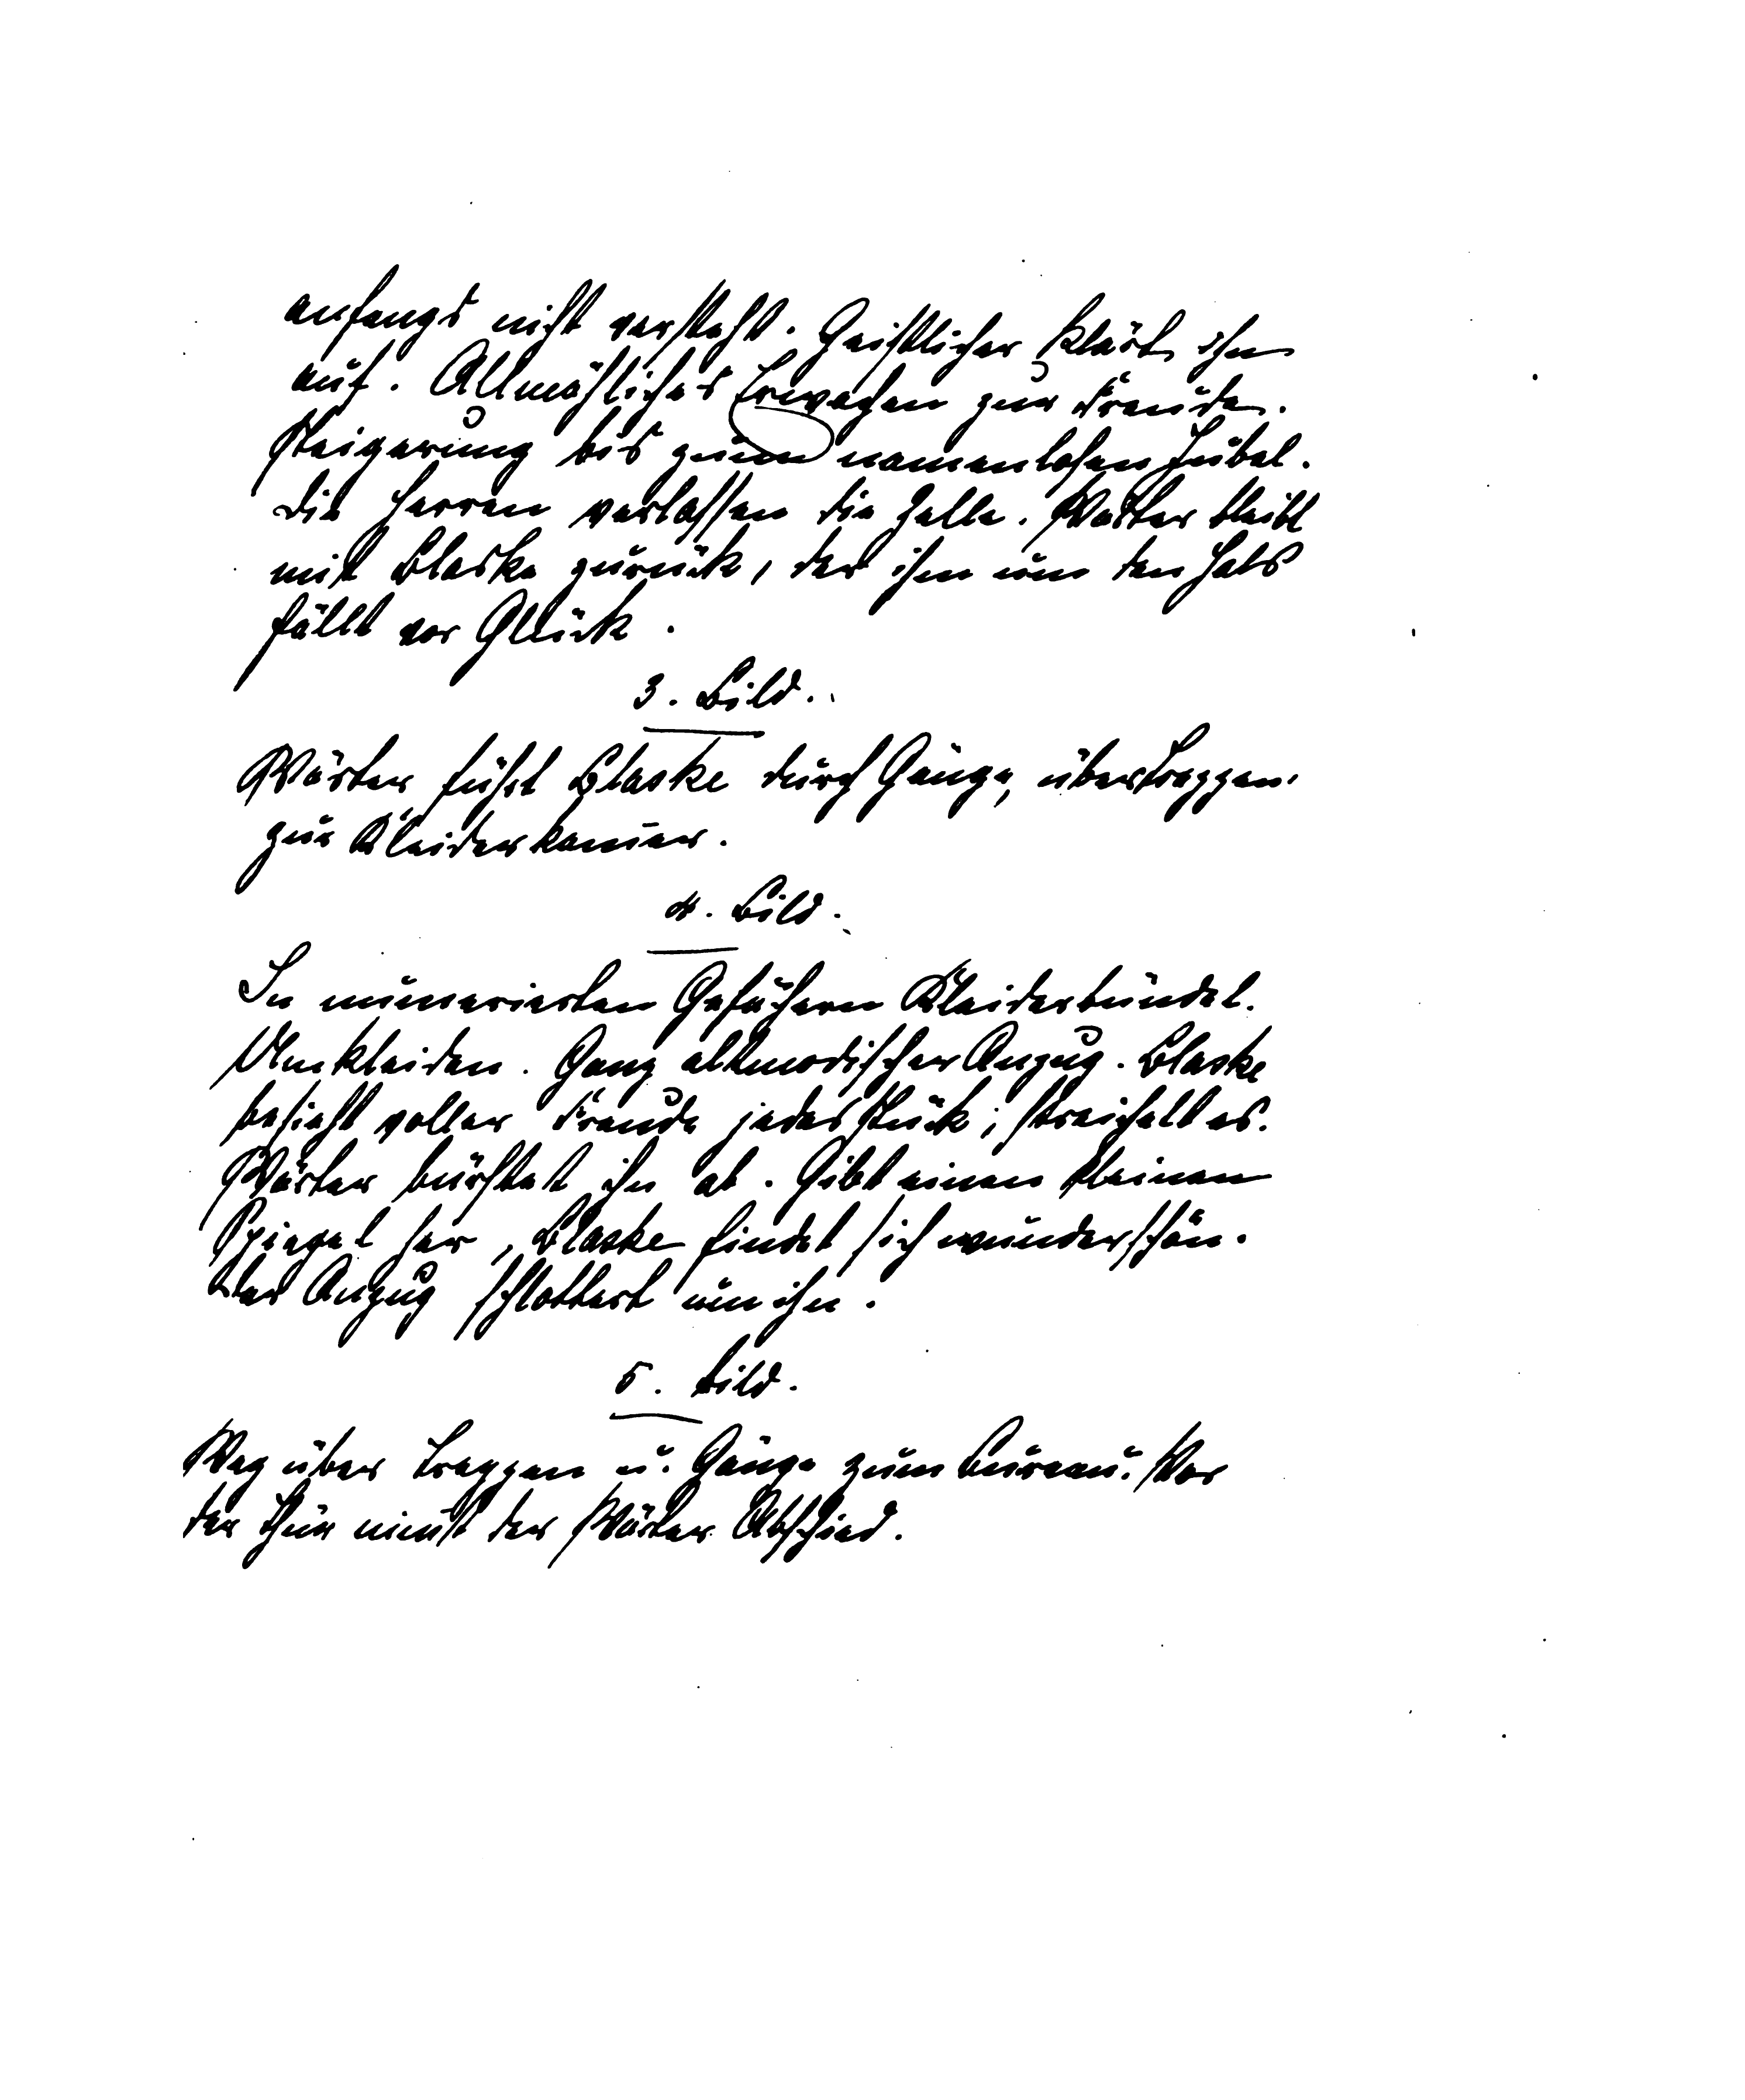 anfangs nicht versteht. Geistlicher klärt ihn
auf. Allmähliches Erwachen zur Freude.
Steigerung bis zum namenlosen Jubel.
Die Herren verlassen die Zelle. Wärter bleibt
mit Blaske zurück, der ihm um den Hals
fällt vor Glück.
3. Bild.
Wärter führt Blaske durch Gänge, über Treppen,
zur Kleiderkam̅er.
4. Bild.
In num̅erierten Gefächern Kleiderbündel.
Umkleiden. Ganz altmodischer Anzug. Blaske
besieht voller Freude jedes Stück; streichelt es.
Wärter bürstet ihn ab. Gibt einen kleinen
Spiegel her, Blaske findet sich wunderschön.
Der Anzug schlottert um ihn.
5. Bild.
Weg über Treppen u. Gänge zum Bureau. Vor
der Thür nim̅t der Wärter Abschied.